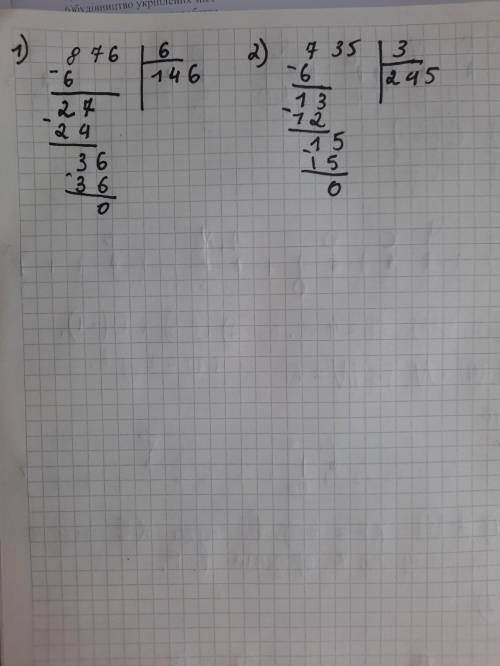 будівництво укріплених
1) 876 | 6
- 6 | 146
27
- 24
36
- 36
0
2) 735 | 3
- 6 | 245
13
- 12
15
- 15
0